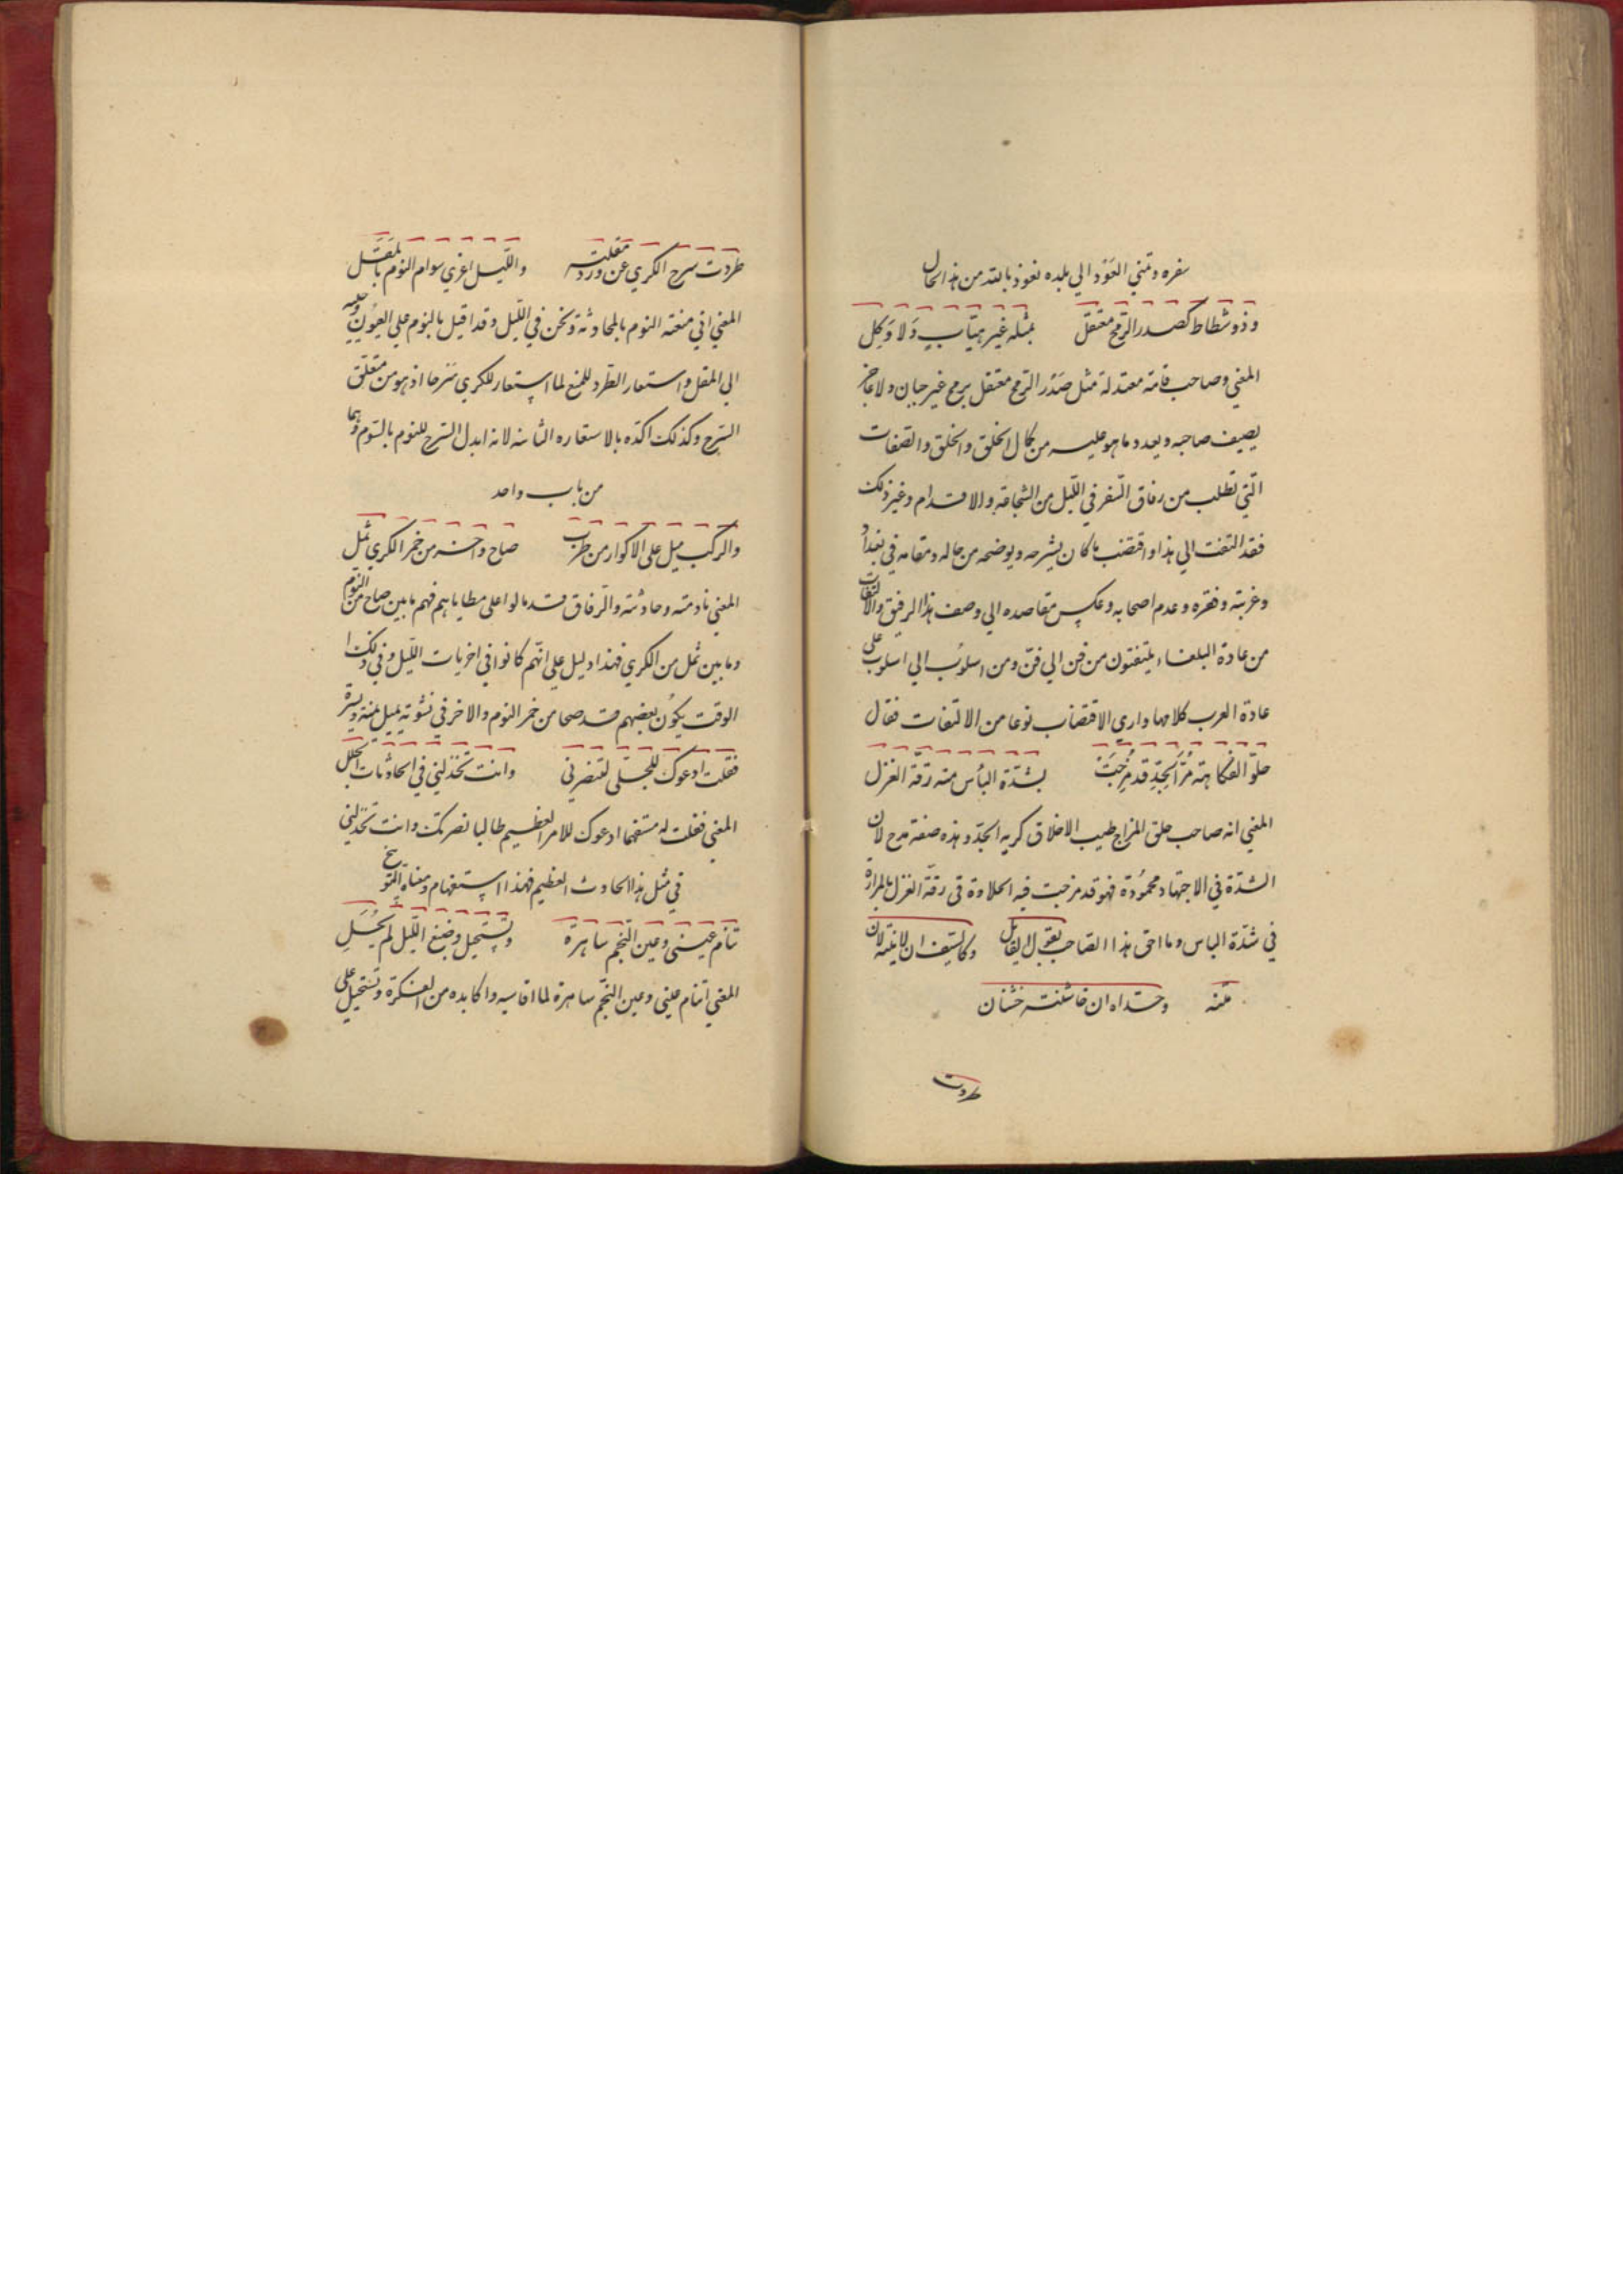 سفره وتمني العَوْد الي بلده نعوذ بالله من هذا الحال
وذو شطاط كصدر الرمح معتقل بمثله غير هيّاب وَلا وَكِل
المعني وصاحب قامة معتدلة مثل صَدْر الرمح معتقل برمح غير جبان ولا عاجز
يصيف صاحبه ويعدد ما هو عليه من كمال الخلق والخلق والصفات
الّتي تطلب من رفاق السفر في اللّيل من الشجاعة والاقدام وغير ذلك
فقد التفت الي هذا واقتضب ما كان يشرحه ويوضحه من حاله ومقامه في بغداد
وغربته وفقره وعدم اصحابه وعكس مقاصده الي وصف هذا الرفيق والالتفات
من عادة البلغاء يلتفتون من فن الي فنّ ومن اسلوُب الي اسلوب علي
عادة العرب كلامها واري الاقتضاب نوعا من الالتفات فقال
حلوّ الفكاهة مُرّ الجِدّ قد مُزِجَتْ بشدّة البأس منه رقّة الغزل
المعني انه صاحب حلو المزاج طيب الاخلاق كريه الجدّ وهذه صفة مدح لان
الشدّة في الاجتهاد محموُدة فهو قد مزجت فيه الحلاوة في رقّة الغزل بالمرارة
في شدّة الباس وما احق هذا الصاحب بقول القائل وكالسّيف ان لاينته لان
متنه وحدّاه ان خاشنته خشنان
طردت
طردت سرح الكري عن ورد مقلته واللّيل اغري سوام النوم بالمُقَل
المعني اني منعته النوم بالمحادثة ونحن في اللّيل وقد اقبل بالنوم علي العيُون وحببه
الي المقل واستعار الطّرد للمنع لما استعار للكري سَرحا اذ هو من متعلق
السّرح وكذلك اكدّه بالاستعاره الثانيه لانه ابدل السّرح للنوم بالسّوم وهما
من باب واحد
والركب ميل على الاكوار من طرب صاح واخر من خمر الكري ثمل
المعني نادمته وحادثته والرفاق قد مالوا على مطاياهم فهم ما بين صاح من النوم
وما بين ثمل من الكري فهذا دليل علي انّهم كانوا في اخريات اللّيل وفي ذلك
الوقت يكوُن بعضهم قد صحا من خمر النوم والاخر في نشوته يميل يمنة ويسرة
فقلت ادعوك للجلّى لتنصرني وانت تخذلني في الحادث الجلل
المعني فقلت له مستفهما ادعوك للامر العظيم طالبا نصرتك وانت تخذلني
في مثل هذا الحادث العظيم فهذا استفهام ومعناه التوبيخ
تنام عيني وعين النجم ساهرة وتستحيل وصبغ اللّيل لم يَحُلِ
المعني اتنام عيني وعين النّجم ساهرة لما اقاسيه واكابده من الفكرة وتستحيل علي